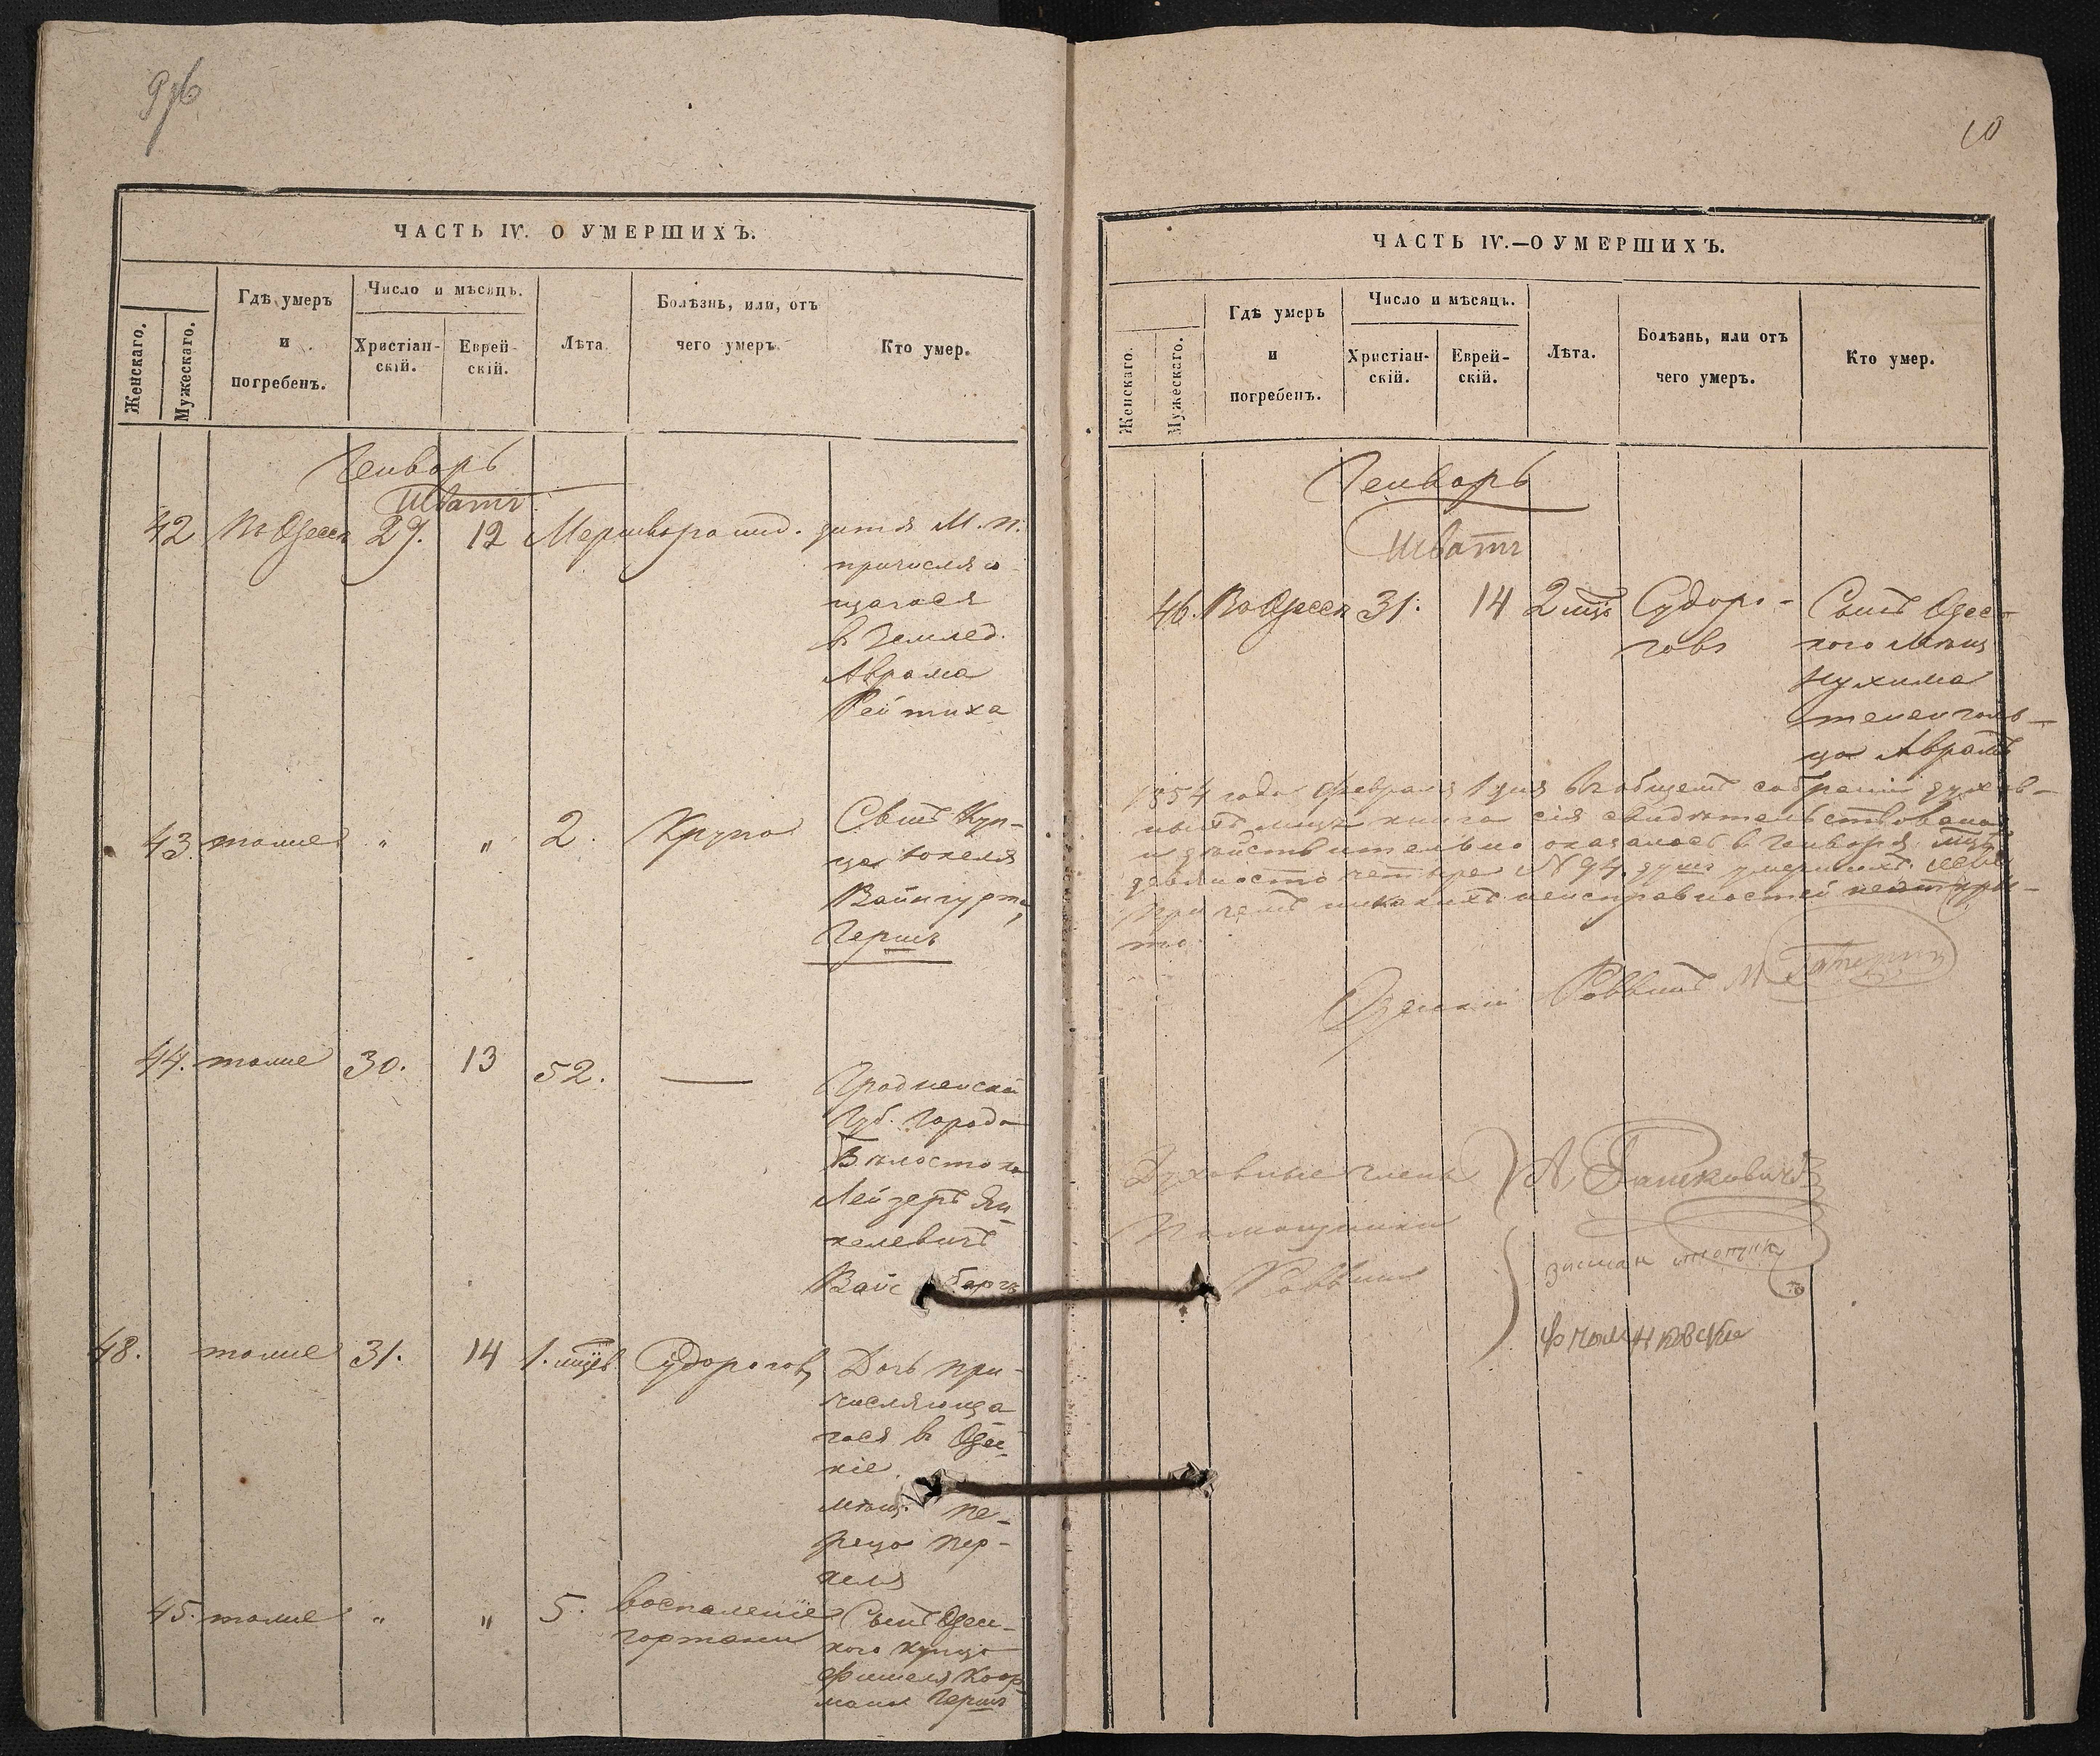 ЧАСТЬ IV. О УМЕРШИХЪ.
Женскаго.
Мужескаго.
Гдѣ умеръ
и
погребенъ.
Число и мѣсяцъ.
Христіан-
скій.
Еврей-
скій.
Лѣта.
Болѣзнь, или, отъ
чего умеръ.
Кто умер.
Генворь
Шватъ
42 Въ Одессѣ 29. 12 дитя М. п.
причисляю
щагося
въ Землед.
Аврама
43. тоже " " 2. Крупа Сынъ Куп-
ца Іокеля
Вайнгурта,
Гершъ
44. тоже 30. 13 52. — Гродненской
Губ. Города
Бѣлостока
Лейзеръ Ян-
келевичъ
Вайсбергъ
48. тоже 31. 14 1. мѣс. Судорогов Дочь при-
числяюща
гося въ Одес-
кіе
мѣщ. Пе-
реца Пер-
келя
45. тоже " " 5. воспаленіе Сынъ Одес-
гортани каго купца
Фишеля Коор-
мана Гершъ
10
ЧАСТЬ IV.—О УМЕРШИХЪ.
Женскаго.
Мужескаго.
Гдѣ умеръ
и
погребенъ.
Число и мѣсяцъ.
Христіан-
скій.
Еврей-
скій.
Лѣта.
Болѣзнь, или отъ
чего умеръ.
Кто умер.
Генворь
Шватъ
46. Въ Одессѣ 31. 14 2 мѣс. Судоро- Сынъ Одес-
говъ кого Мѣщ
Нухима
ца Аврамъ
1854 года Февраля 1 дня въ общемъ собраніи духов-
ныхъ лицъ книга сія свидѣтельствована
и дѣйствительно оказалось въ Генворѣ мѣс.
девяносто четыре № 94 душъ умершихъ.
При чемъ никакихъ неисправностей
то.
Одескій Раввинъ
Духовные члены
Помощники
Раввина